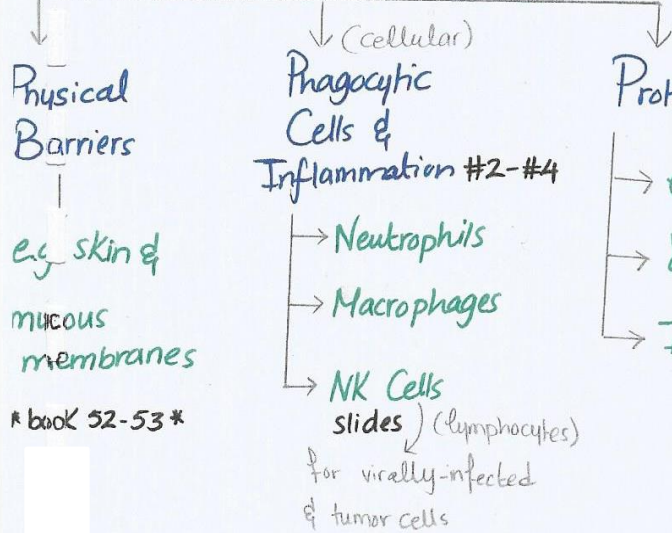 Physical
Barriers
e.g skin &
mucous
membranes
* book 52-53 *
(cellular)
Phagocytic
Cells &
Inflammation #2-#4
Neutrophils
Macrophages
NK Cells
slides (lymphocytes)
for virally-infected
& tumor cells